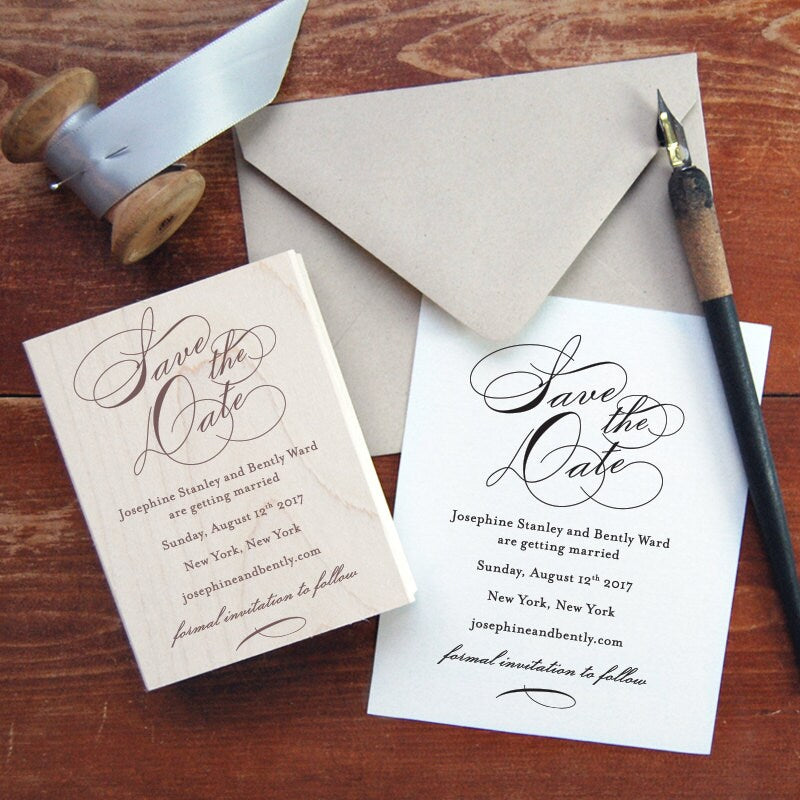 Save the
Date
Josephine Stanley and Bently Ward
are getting married
Sunday, August 12th 2017
New York, New York
josephineandbently.com
formal invitation to follow
Save
the
Date
Josephine Stanley and Bently Ward
are getting married
Sunday, August 12th 2017
New York, New York
josephineandbently.com
formal invitation to follow